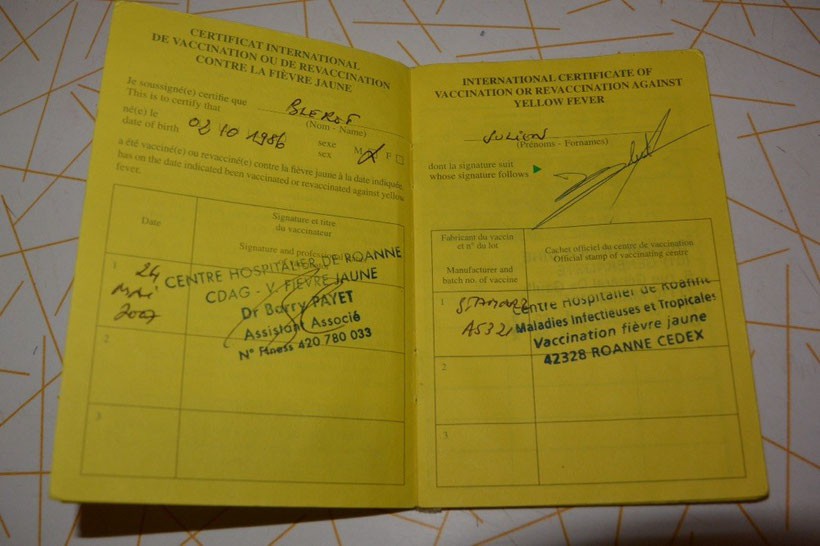 CERTIFICAT INTERNATIONAL
DE VACCINATION OU DE REVACCINATION
CONTRE LA FIÈVRE JAUNE
Je soussigné(e) certifie que
This is to certify that
(Nom - Name)
né(e) le
date of birth 02 10 1986
sexe
sex
M F
a été vacciné(e) ou revacciné(e) contre la fièvre jaune à la date indiquée,
has on the date indicated been vaccinated or revaccinated against yellow
fever.
Date
Signature et titre
du vaccinateur
Signature and
1
24
MAI
2007
CENTRE HOSPITALIER DE ROANNE
CDAG - V. FIEVRE JAUNE
Dr Barry PAYET
Assistant Associé
N° Finess 420 780 033
2
3
INTERNATIONAL CERTIFICATE OF
VACCINATION OR REVACCINATION AGAINST
YELLOW FEVER
JULIEN
(Prénoms - Fornames)
dont la signature suit
whose signature follows
Fabricant du vaccin
et n° du lot
Manufacturer and
batch no. of vaccine
Cachet officiel du centre de vaccination
Official stamp of vaccinating centre
1
STAMARIL
A5321
Centre Hospitalier de Roanne
Maladies Infectieuses et Tropicales
Vaccination fièvre jaune
42328 ROANNE CEDEX
2
3